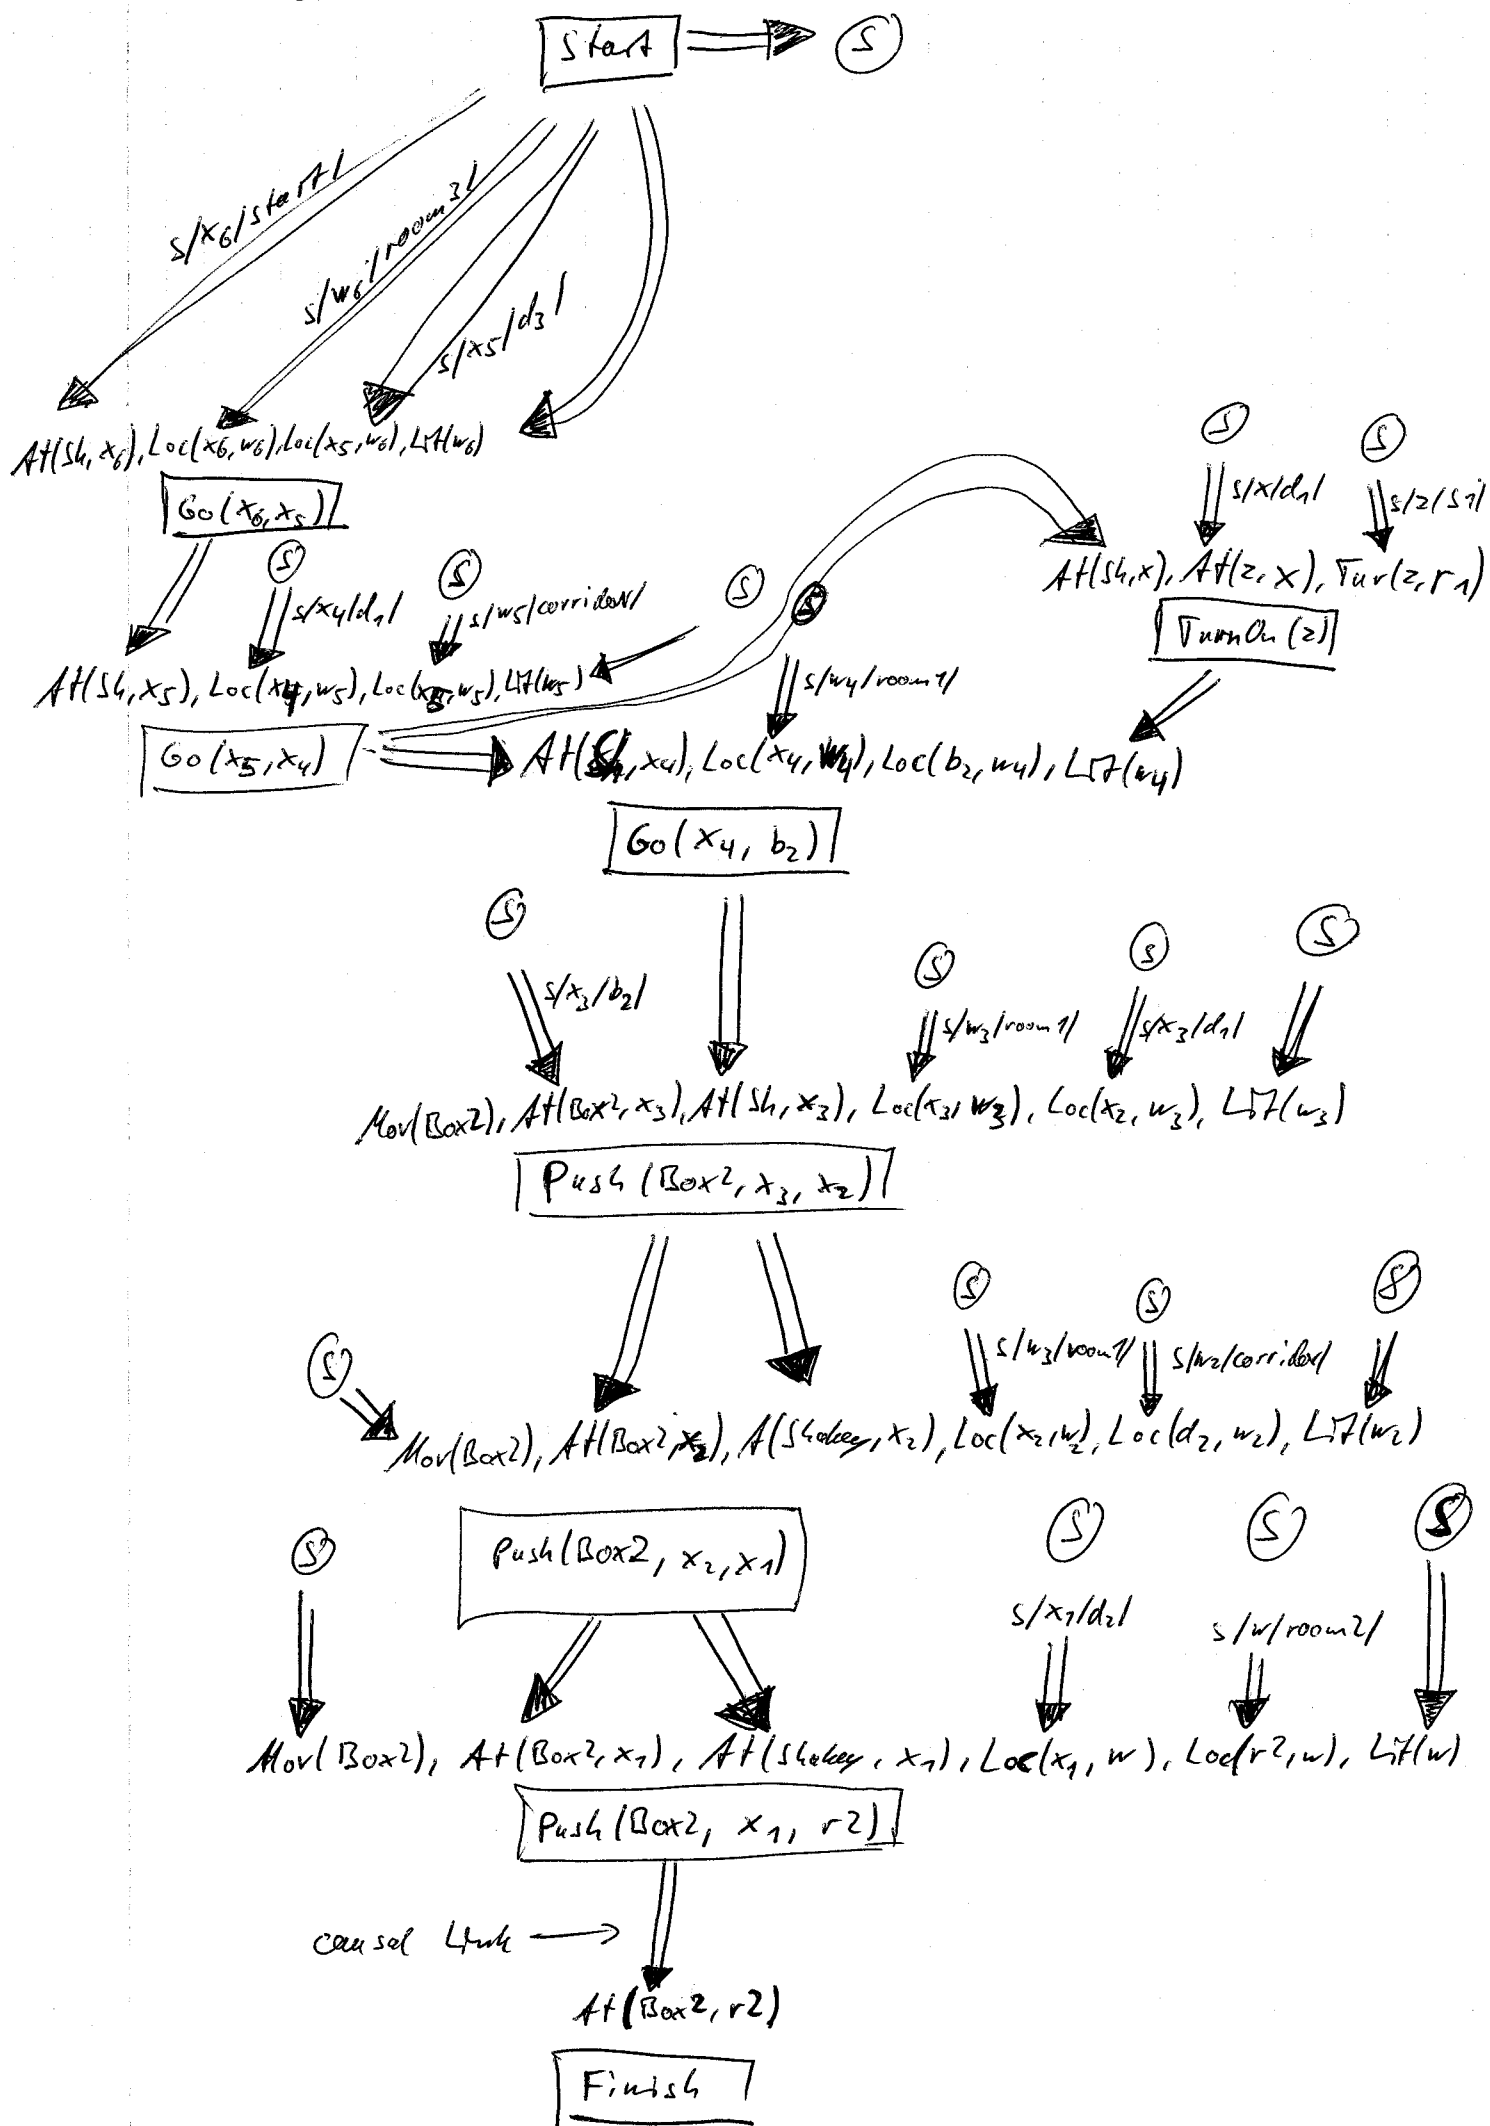 Start S
s/x6/start/
s/w6/room3/
s/x5/d3/
At(Sh, x6), Loc(x6, w6), Loc(x5, w6), Lit(w6)
Go(x6, x5)
S S
s/x/d1/ s/z/S1/
At(Sh, x), At(z, x), Tur(z, r1)
TurnOn(z)
S S S S
s/x4/d1/ s/w5/corridor/
At(Sh, x5), Loc(x4, w5), Loc(x5, w5), Lit(w5)
s/w4/room1/
Go(x5, x4)
At(Sh, x4), Loc(x4, w4), Loc(b2, w4), Lit(w4)
Go(x4, b2)
S S S S
s/x3/b2/ s/w3/room1/ s/x3/d1/
Mov(Box2), At(Box2, x3), At(Sh, x3), Loc(x3, w3), Loc(x2, w3), Lit(w3)
Push(Box2, x3, x2)
S S S S
s/w3/room1/ s/w2/corridor/
Mov(Box2), At(Box2, x2), A(Shakey, x2), Loc(x2, w2), Loc(d2, w2), Lit(w2)
S S S S
Push(Box2, x2, x1)
s/x1/d2/ s/w/room2/
Mov(Box2), At(Box2, x1), At(Shakey, x1), Loc(x1, w), Loc(r2, w), Lit(w)
Push(Box2, x1, r2)
causal Link
At(Box2, r2)
Finish